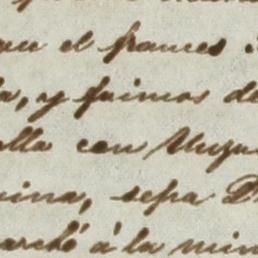 el frances
, y fuimos de
lla con
uina, sepa D
arché á la min